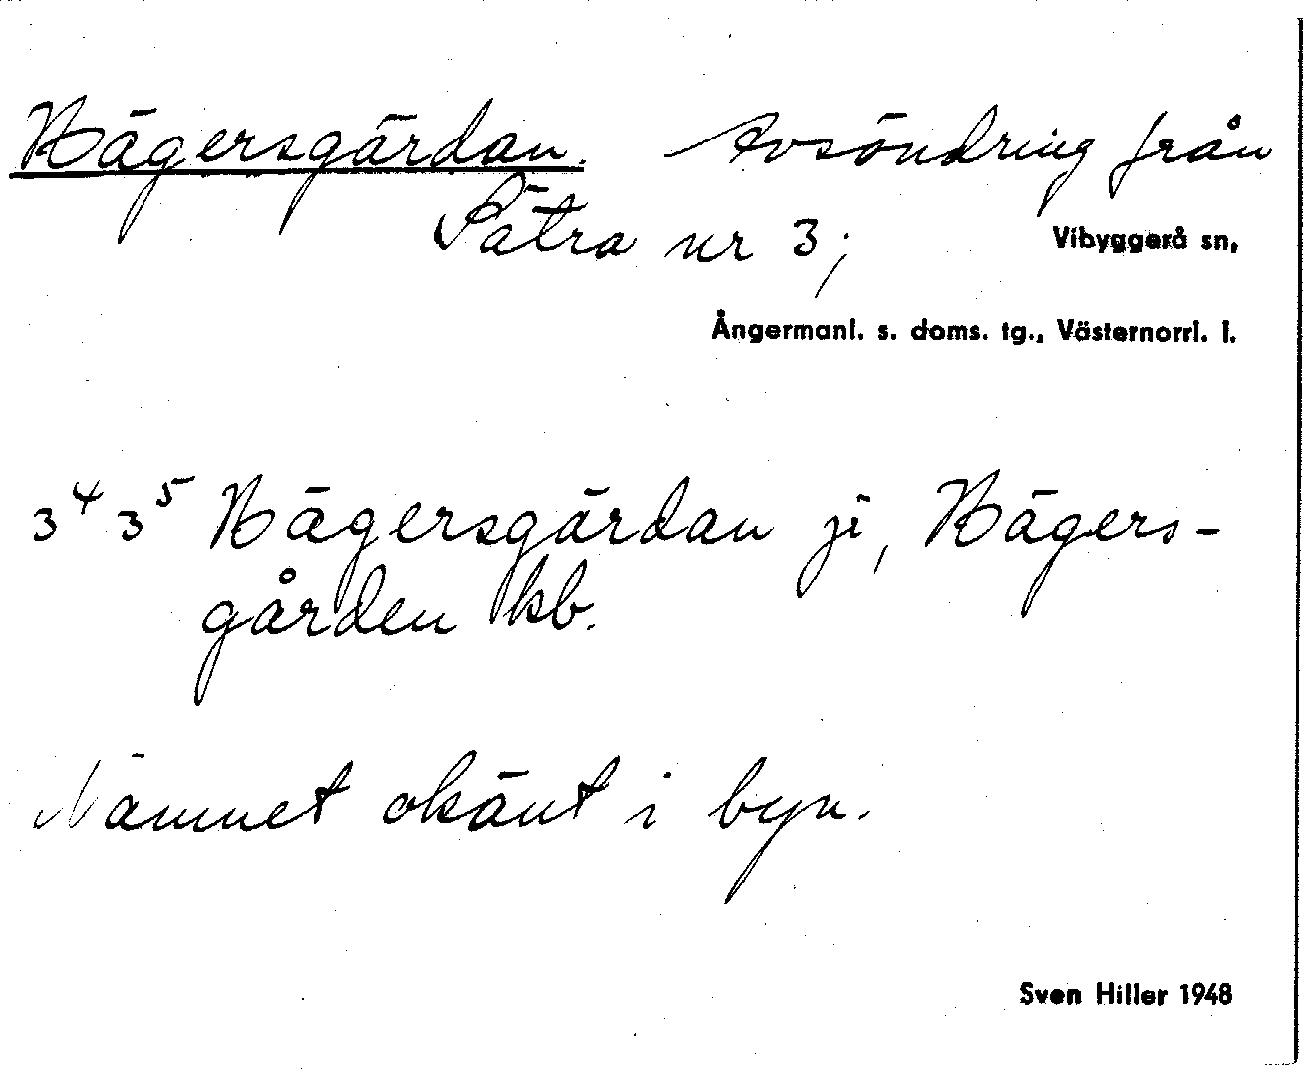 Hägersgärdan. Avsöndring från
Sätra nr 3;
Vibyggerå sn,
Ångermanl. s. doms. tg., Västernorrl. l.
3⁴ 3⁵ Hägersgärdan jr, Hägers-
gården kb.
Namnet okänt i byn.
Sven Hiller 1948